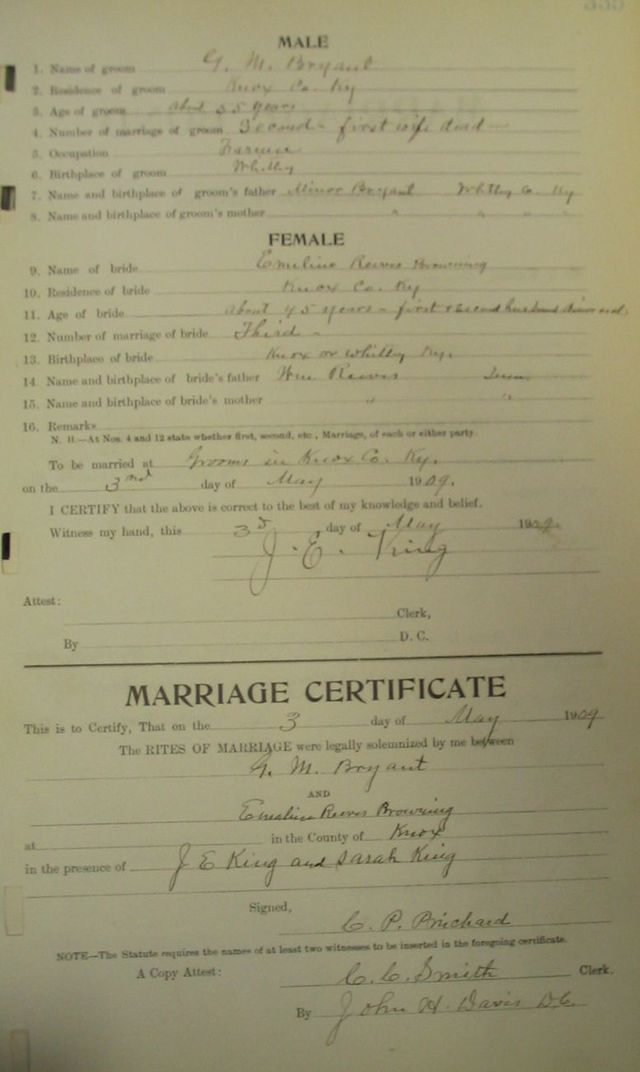 335
MALE
1. Name of groom G. M. Bryant
2. Residence of groom Knox Co. Ky
3. Age of groom about 55 years
4. Number of marriage of groom Second - first wife dead
5. Occupation Farmer
6. Birthplace of groom Whitley
7. Name and birthplace of groom's father Minor Bryant Whitley Co. Ky
8. Name and birthplace of groom's mother " " " "
FEMALE
9. Name of bride Emeline Reeves Browning
10. Residence of bride Knox Co. Ky
11. Age of bride about 45 years - first & second husband
12. Number of marriage of bride Third -
13. Birthplace of bride Knox or Whitley Ky.
14. Name and birthplace of bride's father Wm. Reeves
15. Name and birthplace of bride's mother " "
16. Remarks
N. B.—At Nos. 4 and 12 state whether first, second, etc., Marriage, of each or either party.
To be married at Grooms in Knox Co. Ky.
on the 3rd day of May 1909.
I CERTIFY that the above is correct to the best of my knowledge and belief.
Witness my hand, this 3d day of May 1909.
J. E. King
Attest:
Clerk,
By D. C.
MARRIAGE CERTIFICATE
This is to Certify, That on the 3 day of May 1909
The RITES OF MARRIAGE were legally solemnized by me between
G. M. Bryant
AND
Emeline Reeves Browning
at in the County of Knox
in the presence of J E King and Sarah King
Signed,
C. P. Prichard
NOTE—The Statute requires the names of at least two witnesses to be inserted in the foregoing certificate.
A Copy Attest: C. C. Smith Clerk.
By John H. Davis DC